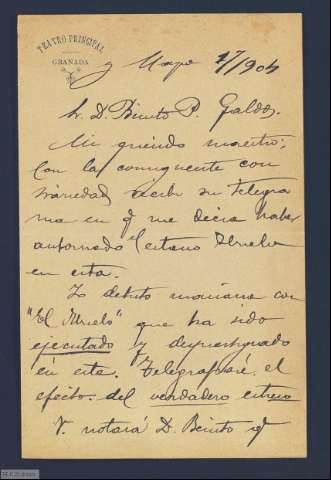 TEATRO PRINCIPAL
GRANADA
y Mayo 17/904
Sr. D. Benito P. Galdos.
Mi querido maestro:
Con la consiguente con
trariedad recibi su telegra
ma en q me decia haber
autorizado el estreno Abuelo
en esta.
Yo debuto mañana con
"El Abuelo" que ha sido
ejecutado y desprestigiado
en esta. Telegrafiaré el
efecto del verdadero estreno
V. notará D. Benito q